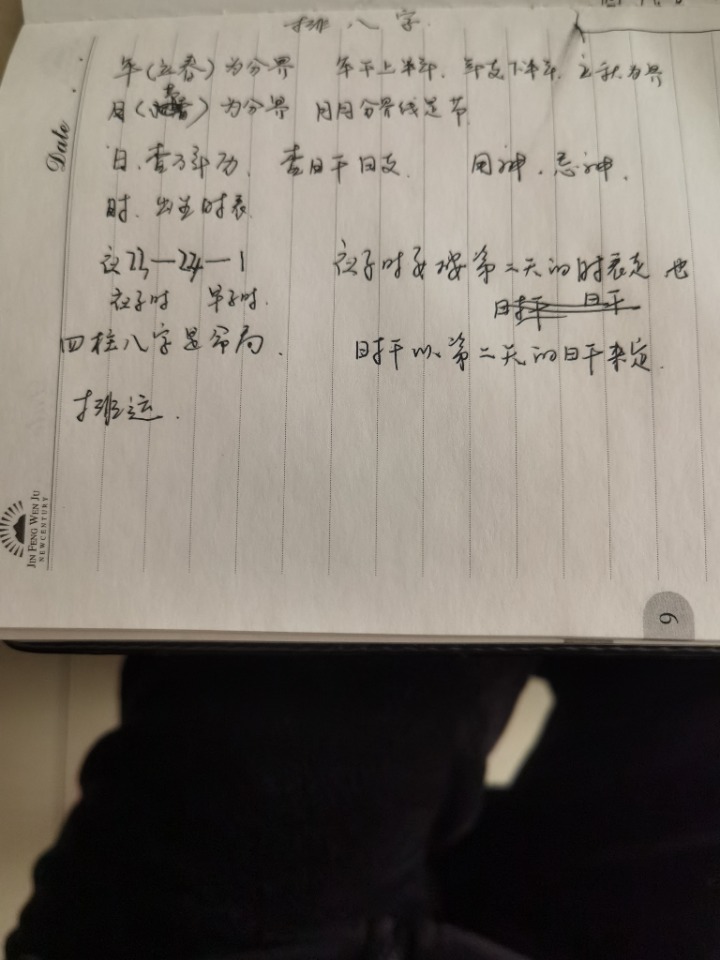 排八字.
年(立春)为分界 年干上半年. 年支下半年. 立秋为界
月(节)为分界 月月分界线是节.
日.查万年历. 查日干日支. 用神.忌神.
时.出生时辰
夜23—24—1 夜子时要按第二天的时辰定 也
夜子时 早子时.
四柱八字是命局. 时干以第二天的日干来定.
排运.
Date
JIN FENG WEN JU
NEWCENTURY
9